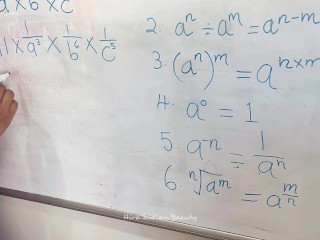 a × b × c
1 × 1/a³ × 1/b⁶ × 1/c⁵
2. aⁿ ÷ aᵐ = aⁿ⁻ᵐ
3. (aⁿ)ᵐ = aⁿˣᵐ
4. a⁰ = 1
5. a⁻ⁿ = 1/aⁿ
6. ⁿ√aᵐ = a^(m/n)
Hira Indian Beauty